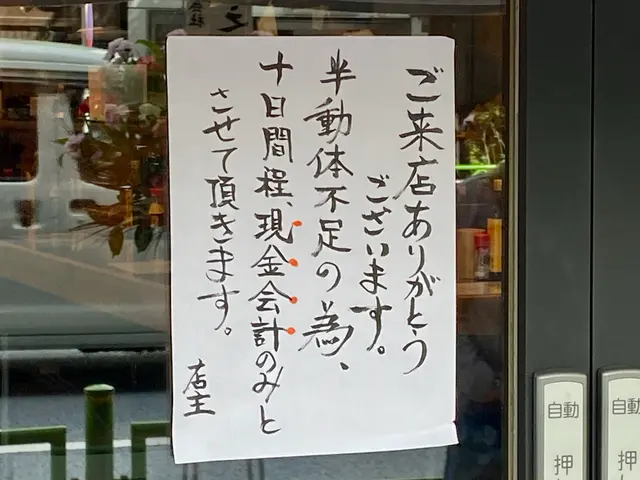 ご来店ありがとう
ございます。
半動体不足の為、
十日間程、現金会計のみと
させて頂きます。
店主
自動
押
自動
押